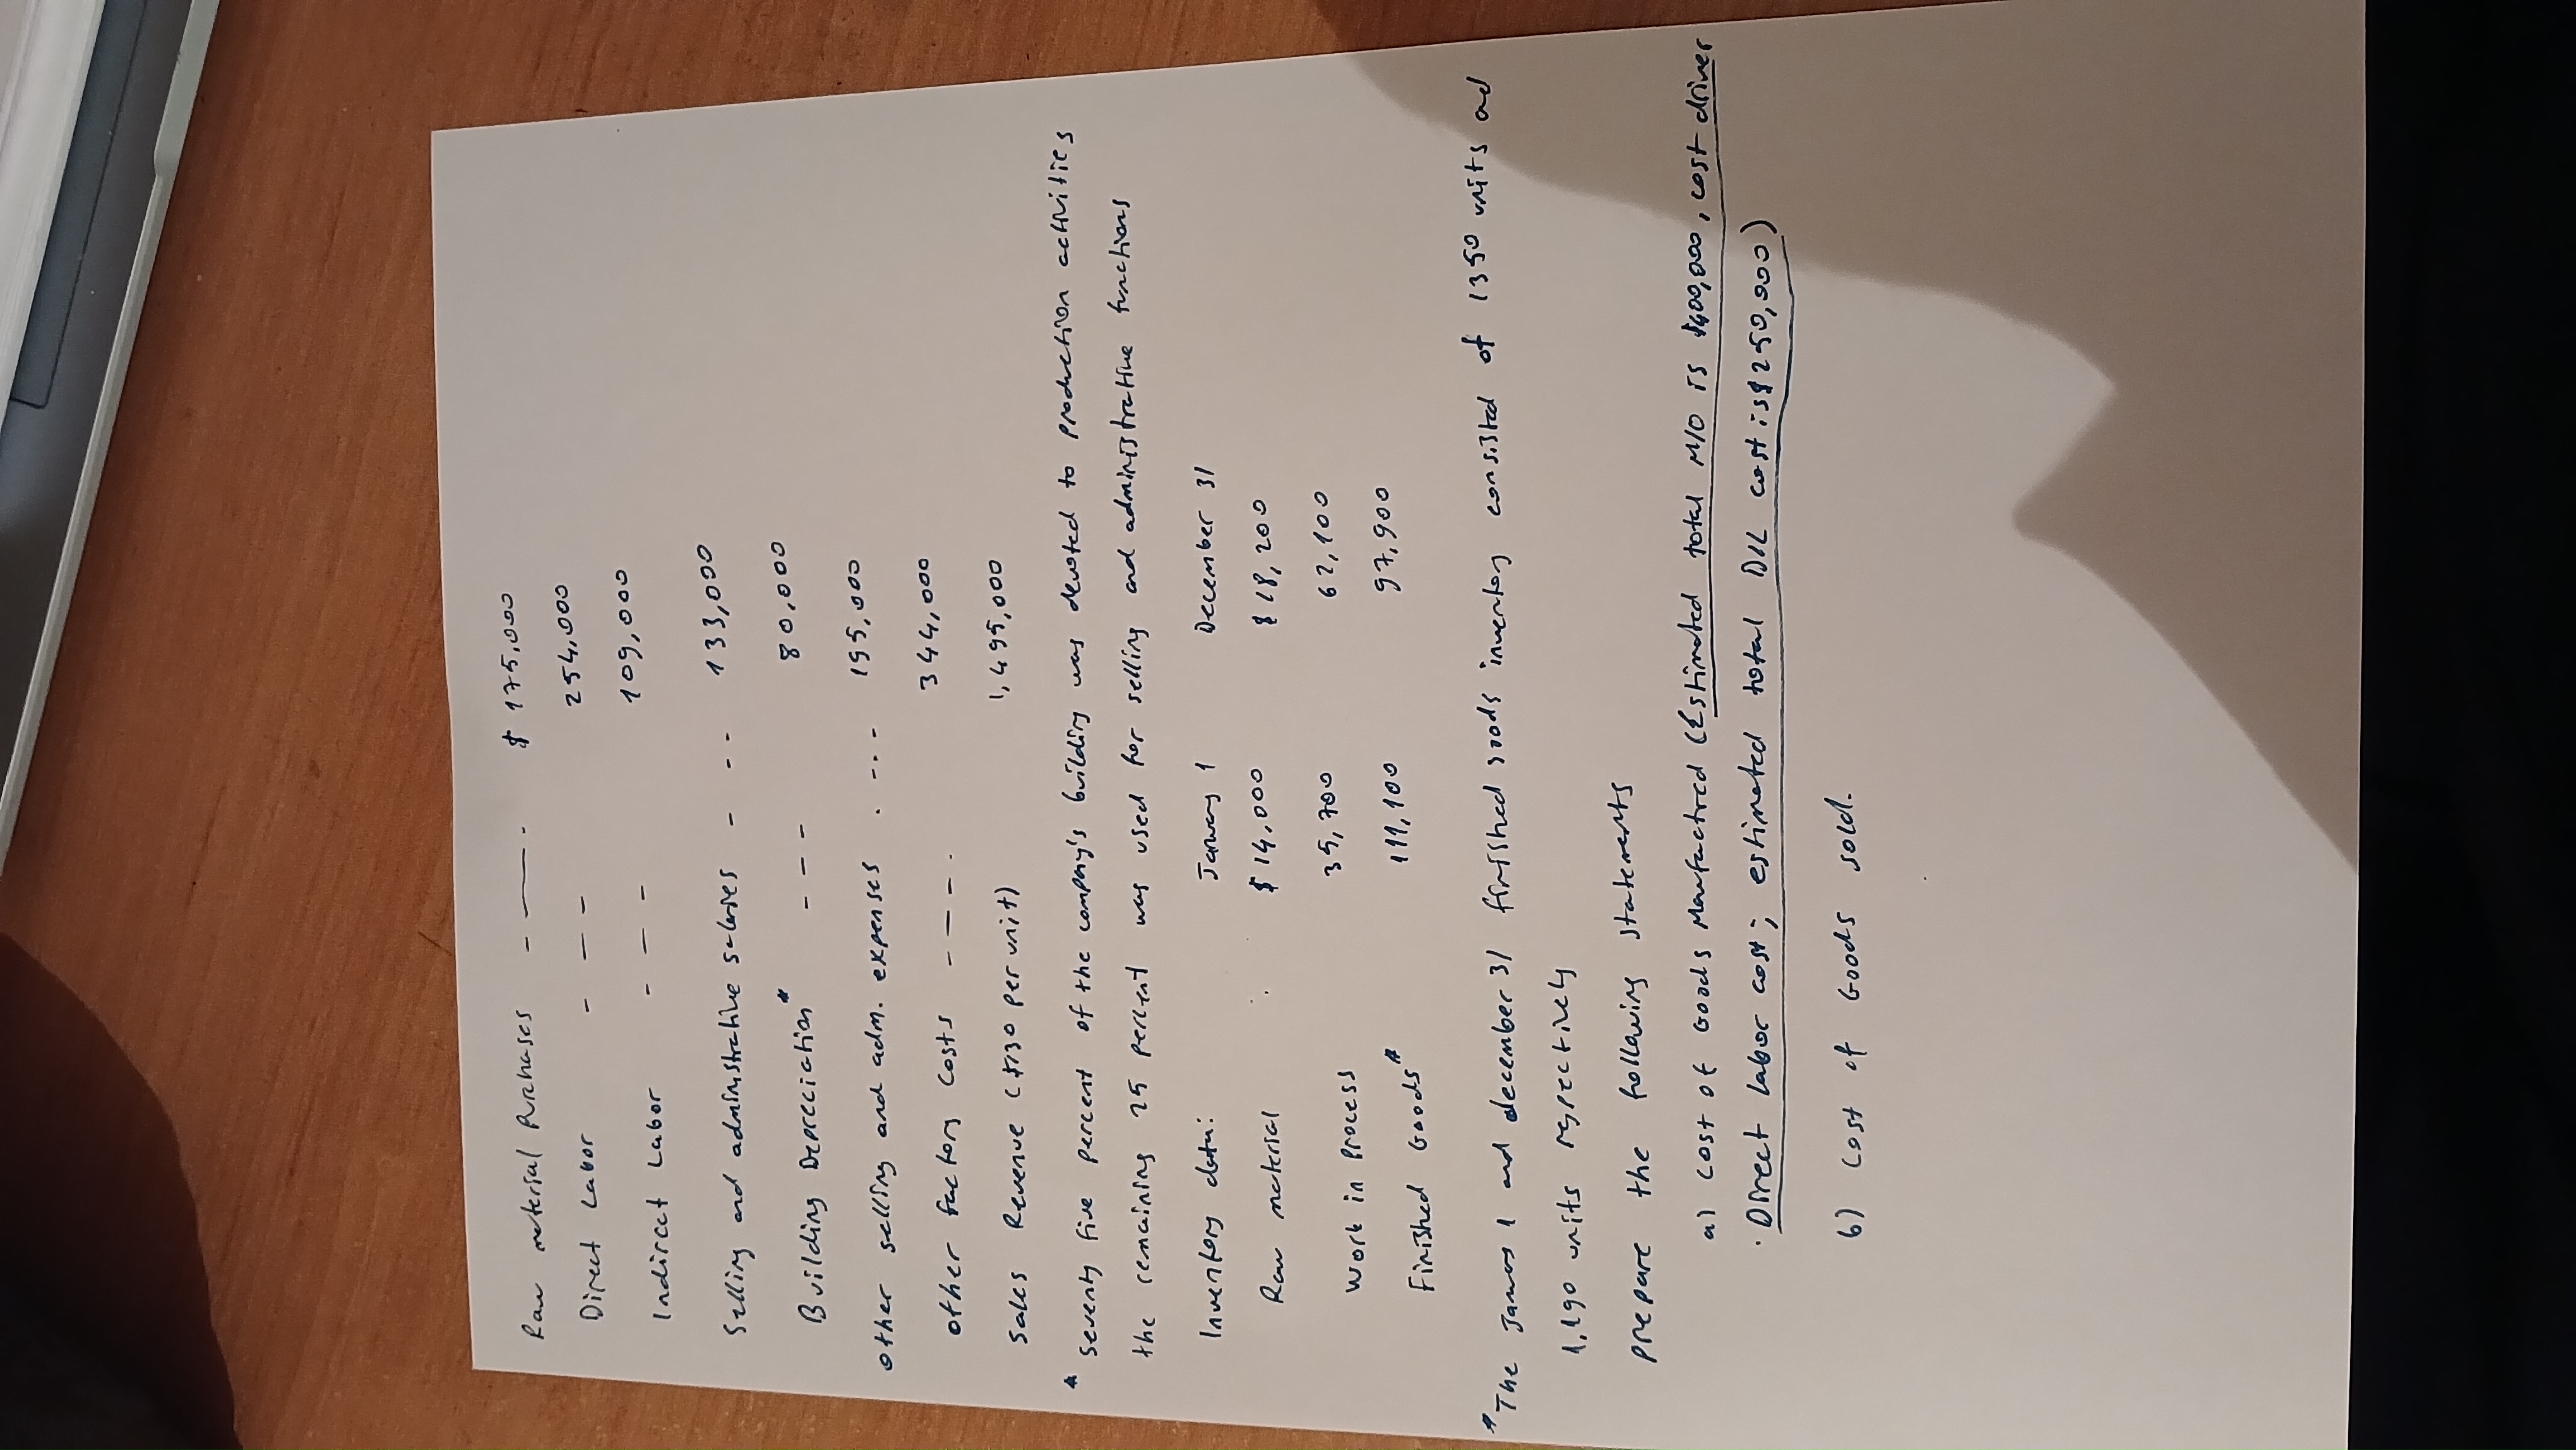 Raw material Purchases - — . $ 175,000
Direct Labor - - - 254,000
Indirect Labor - - - 109,000
Selling and administrative salaries - - - 133,000
Building Depreciation* - - - 80,000
other selling and adm. expenses . - . - 195,000
other factory costs - - - . 344,000
Sales Revenue ($130 per unit) 1,495,000
* Seventy five percent of the company's building was devoted to production activities
the remaining 25 percent was used for selling and administrative functions
Inventory data: January 1 December 31
Raw material $14,000 $18,200
Work in Process 35,700 62,100
Finished Goods* 111,100 97,900
*The January 1 and december 31 finished goods inventory consisted of 1350 units and
1,190 units respectively
Prepare the following statements
a) Cost of Goods Manufactred (Estimated total M/O is $400,000, cost driver
. Direct Labor cost; estimated total D/L cost is $250,000)
b) Cost of Goods sold.